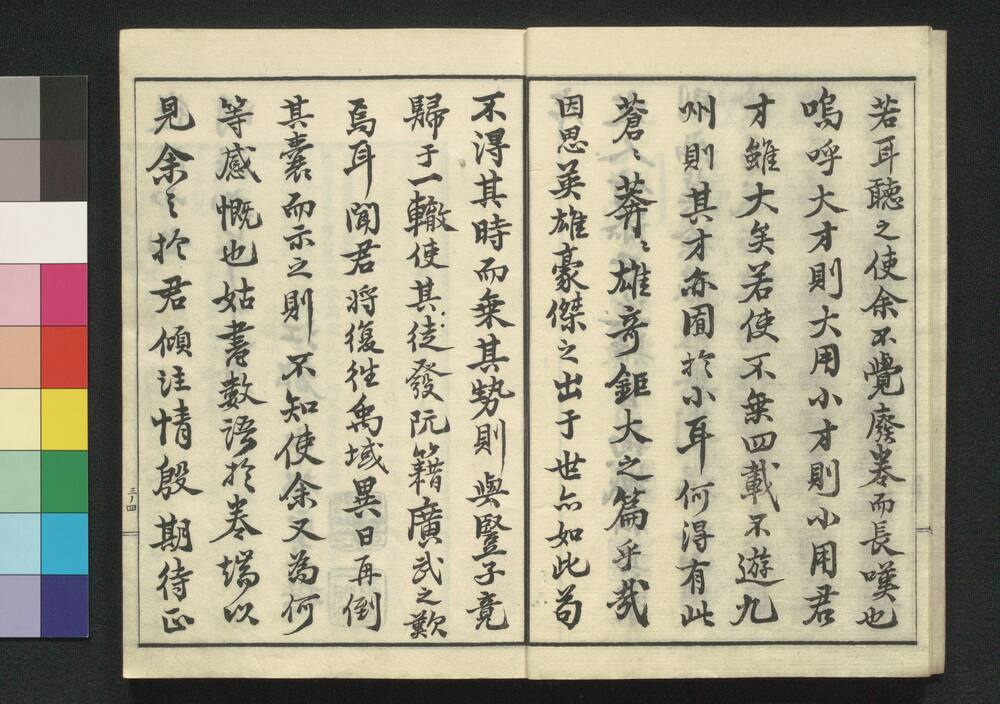 若耳聽之使余不覺廢卷而長嘆也
嗚呼大才則大用小才則小用君
才雖大矣若使不乗四載不遊九
州則其才亦囿於小耳何得有此
蒼〻莽〻雄奇鉅大之篇乎哉
因思英雄豪傑之出于世亦如此苟
不得其時而乗其勢則與豎子竟
歸于一轍使其徒發阮籍廣武之歎
焉耳聞君将復徃禹域異日再倒
其囊而示之則不知使余又為何
等感慨也姑書數语於卷端以
見余之於君傾注情殷期待正
三ノ四